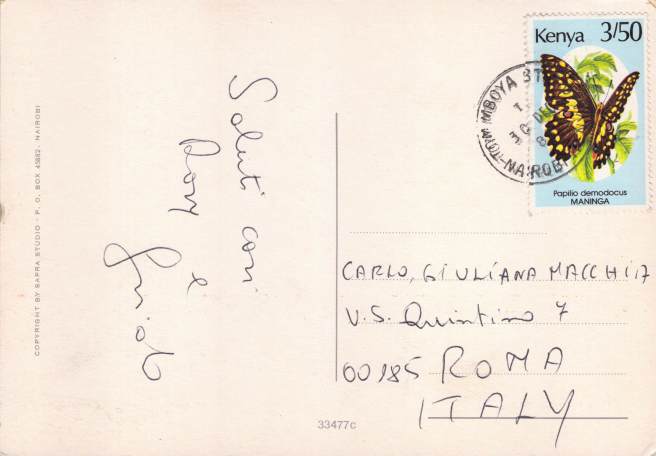 Saluti cari
Rosy
e
Guido
COPYRIGHT BY SAPRA STUDIO - P. O. BOX 45882, NAIROBI
Kenya 3/50
Papilio demodocus
MANINGA
TOM MBOYA ST
NAIROBI
CARLO, GIULIANA MACCHIA
V.S. Quintino 7
00185 ROMA
ITALY
33477c